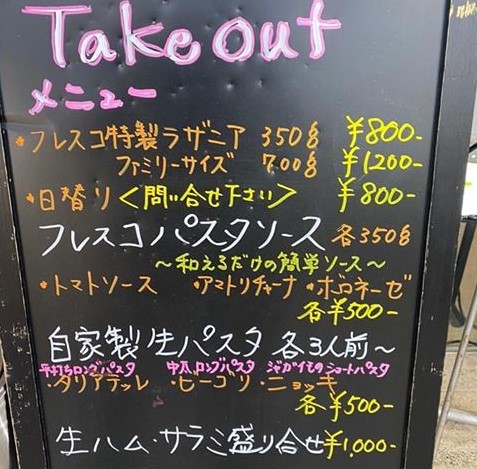 Take out
メニュー
・フレスコ特製ラザニア 350g ¥800-
ファミリーサイズ 700g ¥1200-
・日替り<問い合せ下さい> ¥800-
フレスコパスタソース 各350g
～和えるだけの簡単ソース～
・トマトソース ・アマトリチャーナ ・ボロネーゼ
各¥500-
自家製生パスタ 各3人前～
平打ちロングパスタ 中太ロングパスタ ジャガイモのショートパスタ
・タリアテッレ ・ピーゴリ ・ニョッキ
各¥500-
生ハム・サラミ盛り合せ¥1,000-